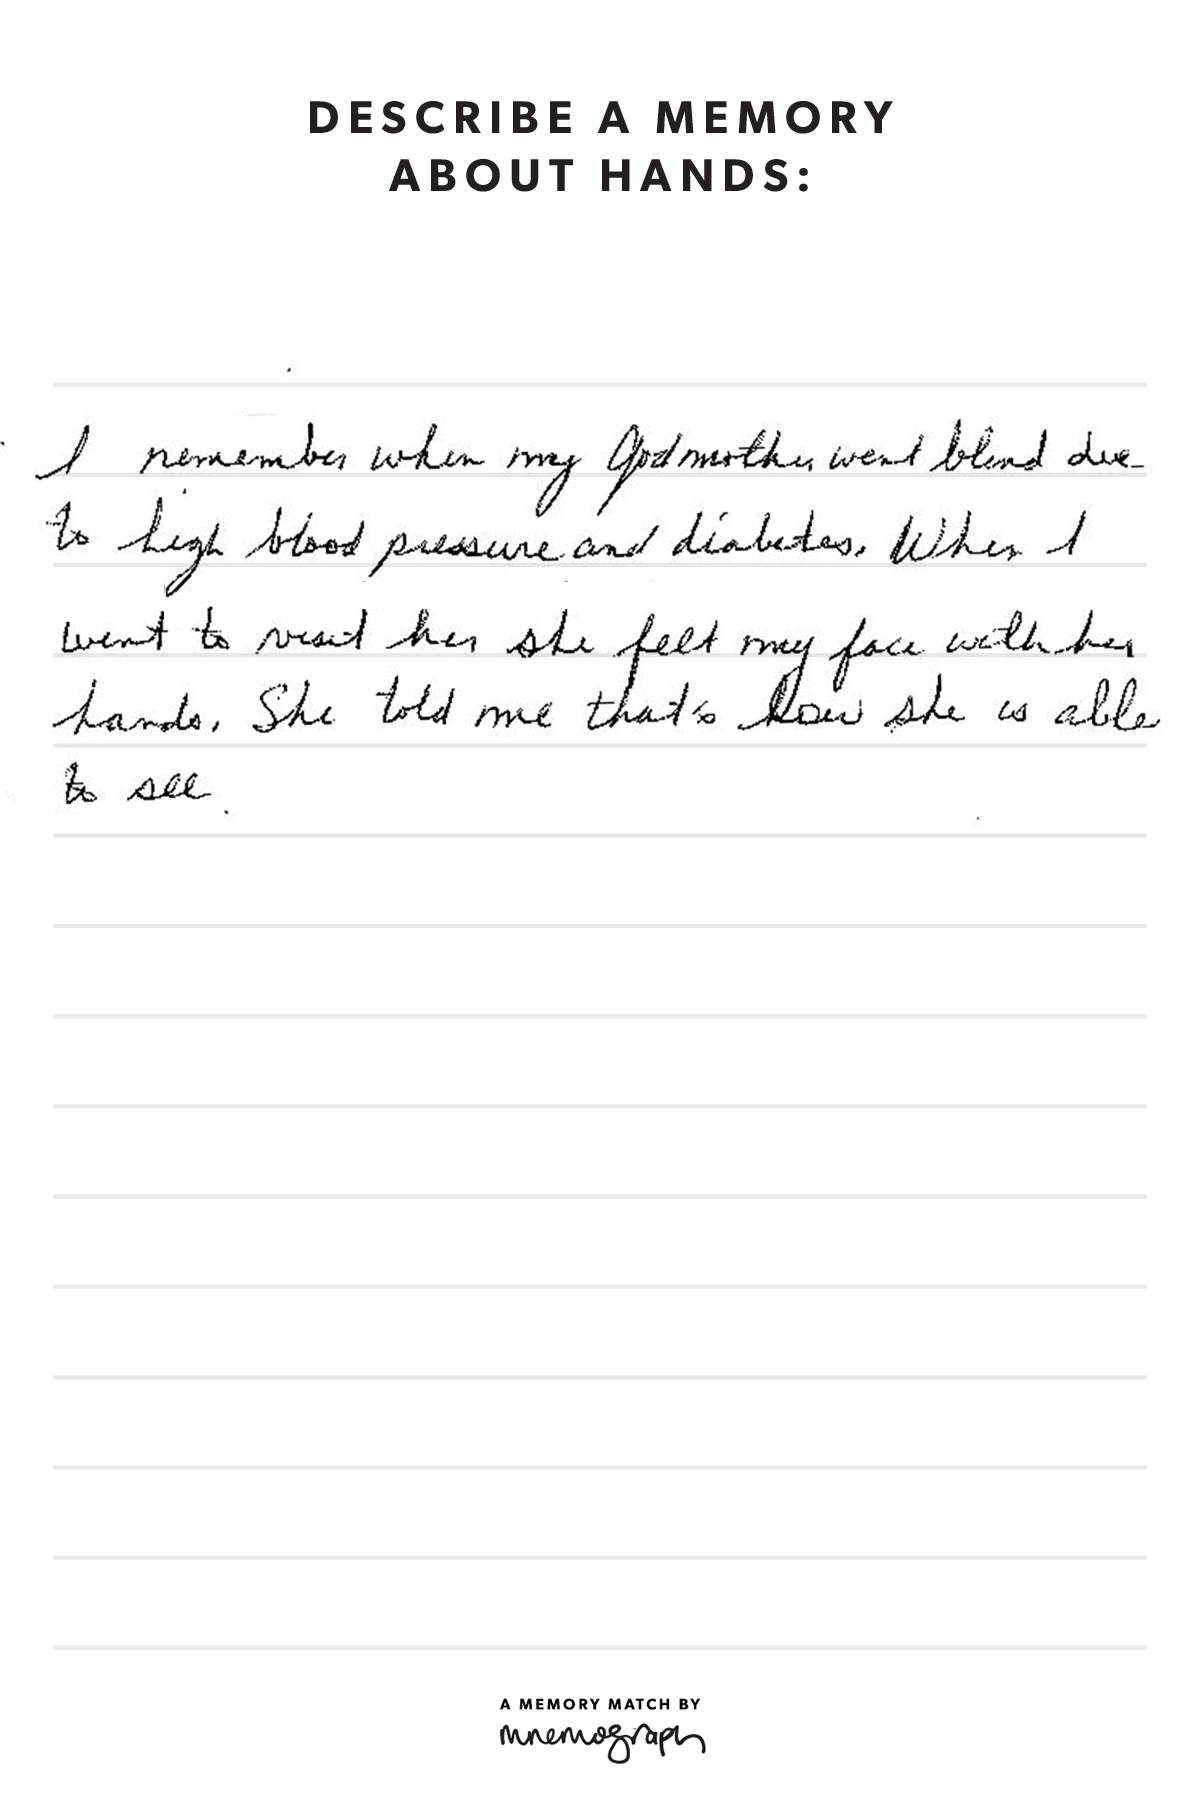 DESCRIBE A MEMORY
ABOUT HANDS:
I remember when my Godmother went blind due
to high blood pressure and diabetes. When I
went to visit her she felt my face with her
hands. She told me that's how she is able
to see.
A MEMORY MATCH BY
mnemograph